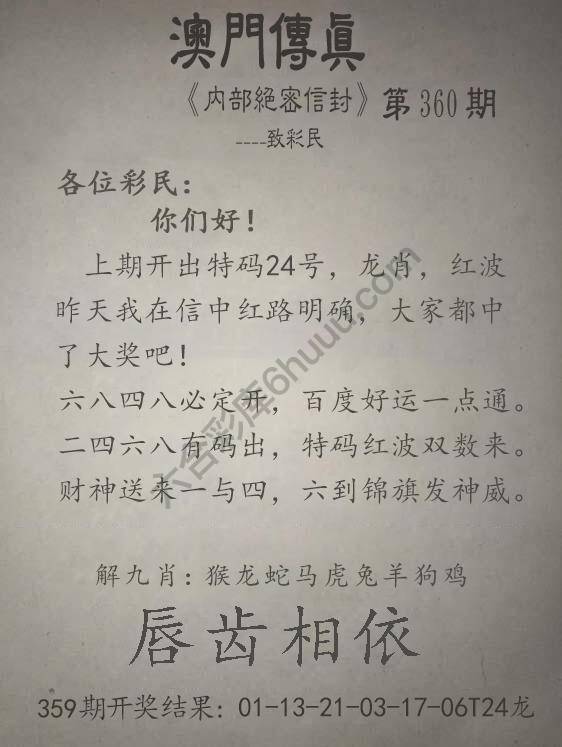 澳門傳眞
《内部絕密信封》第360期
----致彩民
各位彩民：
你们好！
上期开出特码24号，龙肖，红波
昨天我在信中红路明确，大家都中
了大奖吧！
六八四八必定开，百度好运一点通。
二四六八有码出，特码红波双数来。
财神送来一与四，六到锦旗发神威。
六合彩库6huuu.com
解九肖：猴龙蛇马虎兔羊狗鸡
唇齿相依
359期开奖结果：01-13-21-03-17-06T24龙